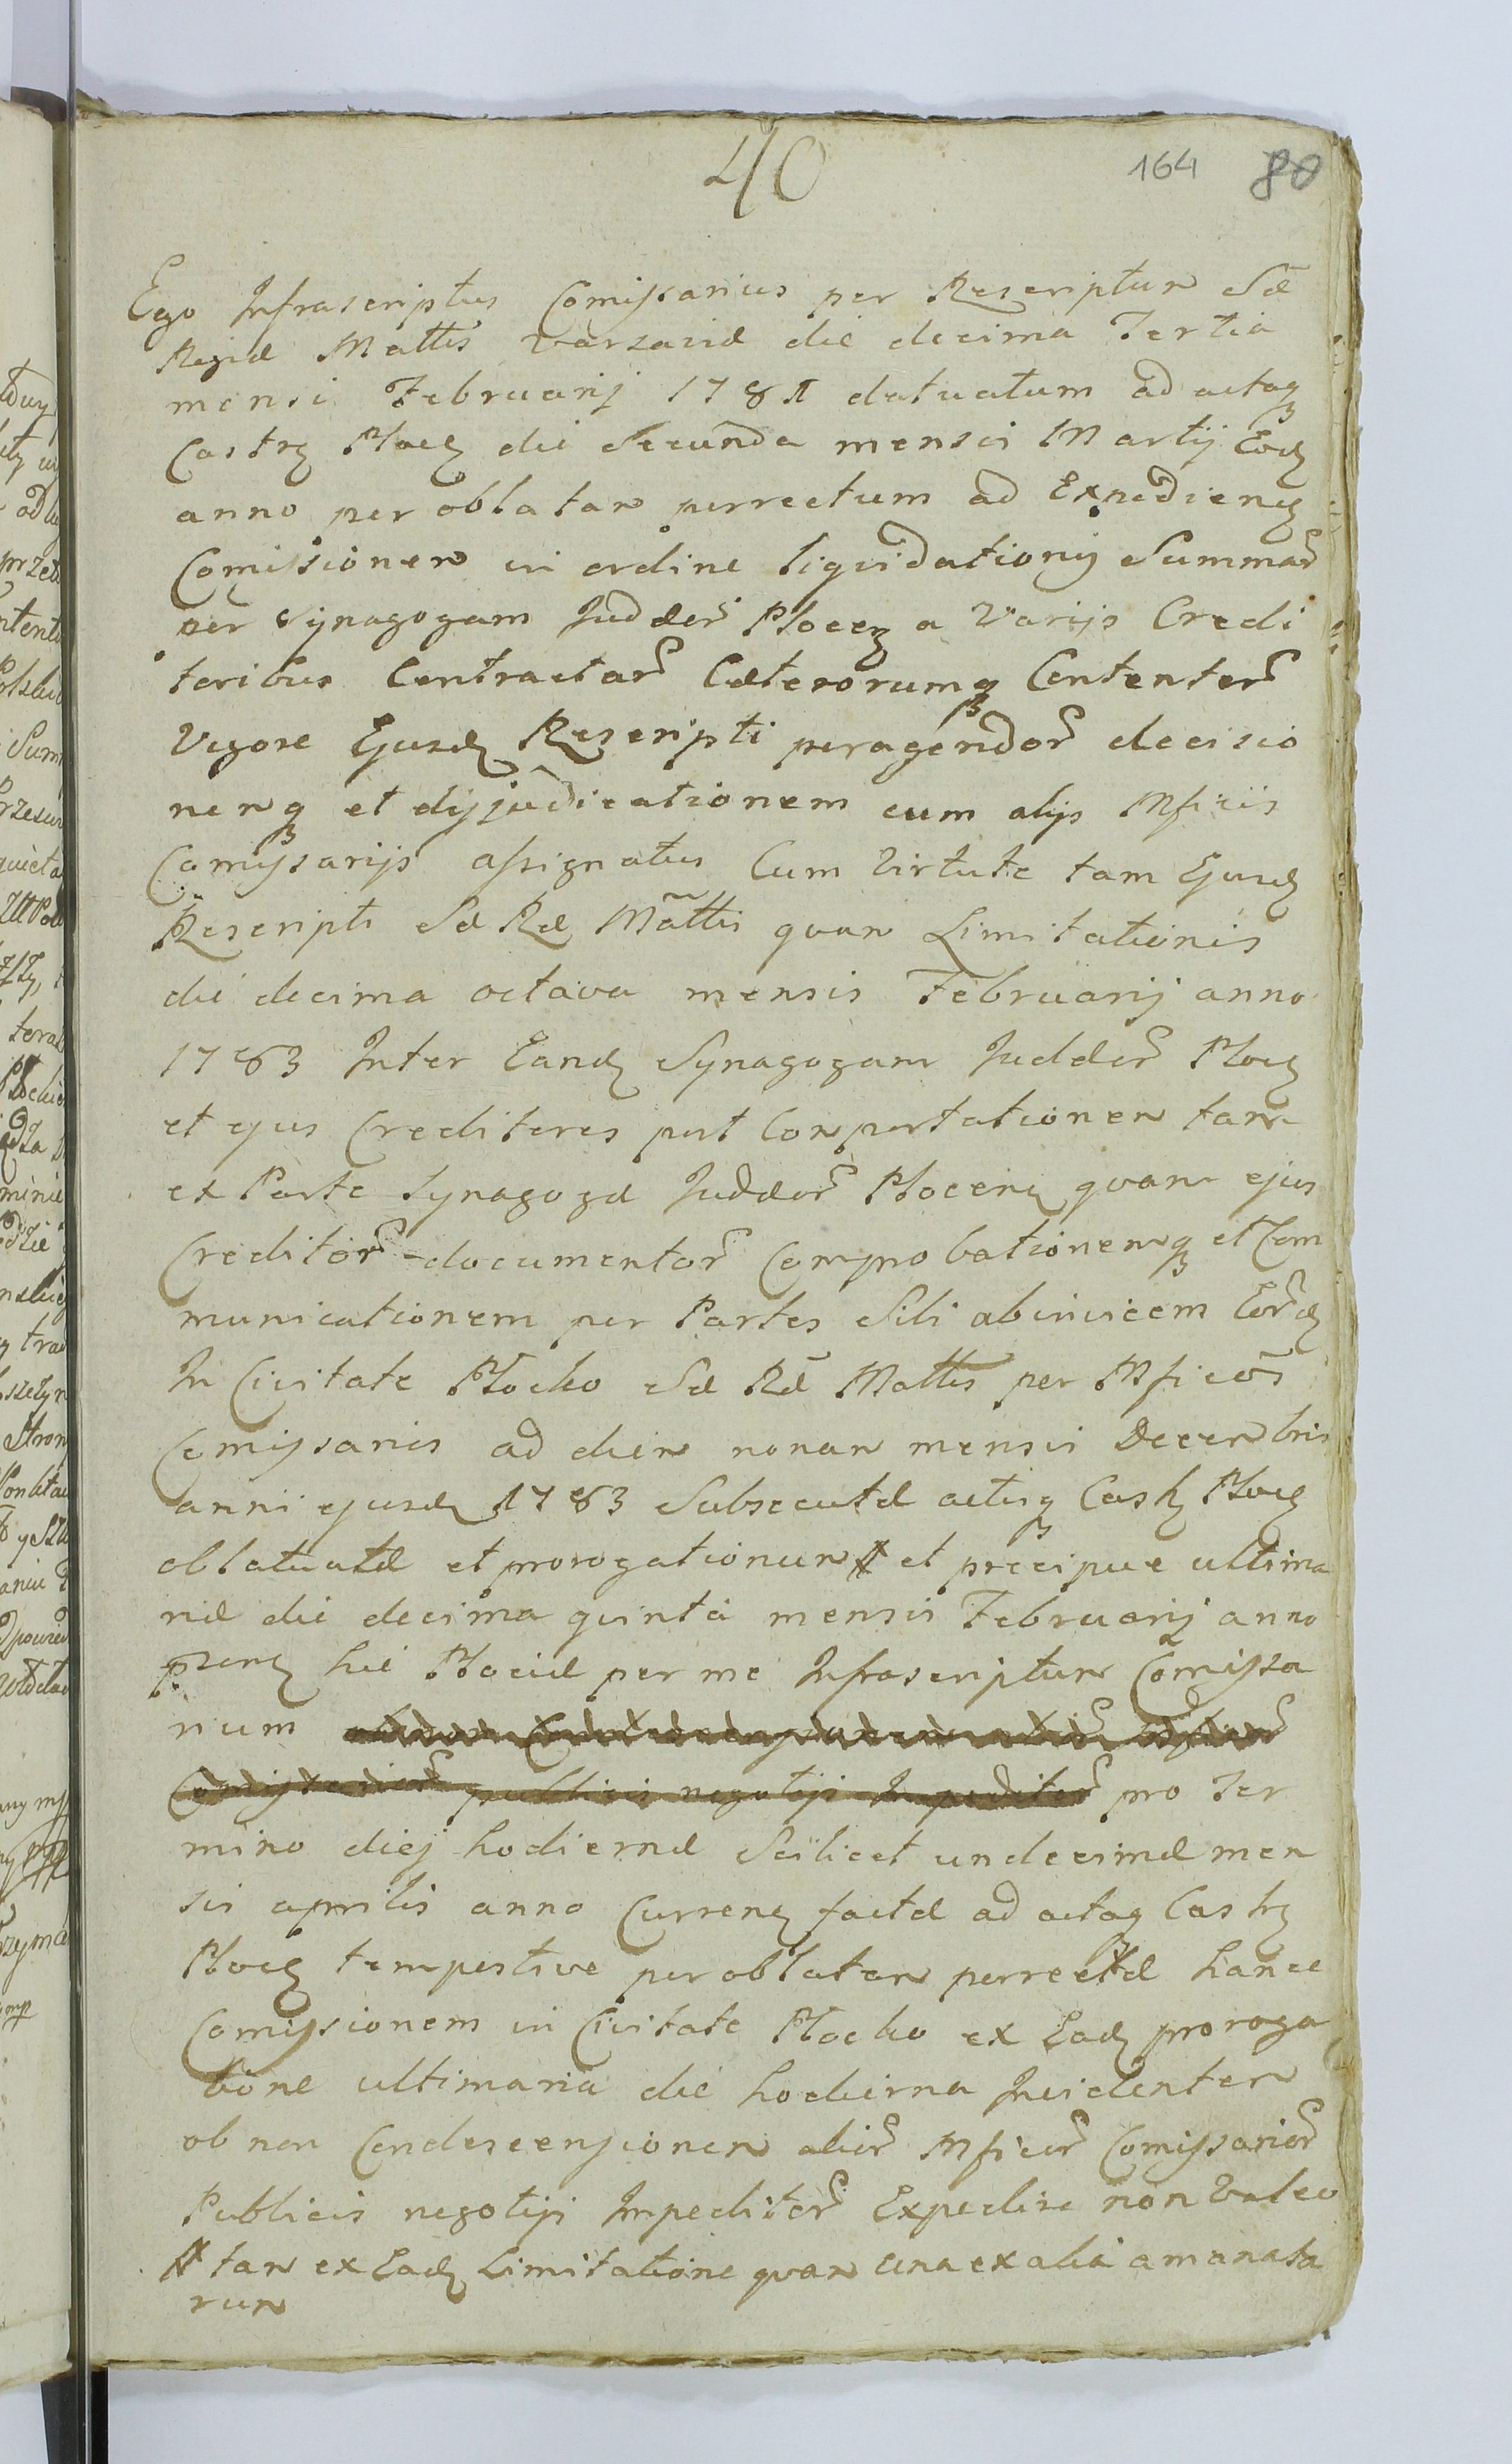 40
164 80
Ego Infrascriptus Comissarius per Rescriptum Sæ
Regiæ Mattis Varsaviæ die decima Tertia
mensi Februarij 1781 datuatum ad actaq
Castrz Plocz die Secunda mensis Martij Eodz
anno per oblatam perrectum ad Expedienz
Comissionem in ordine liquidationis Summar
per Synagogam Judæor Plocenz a Varijs Credi
toribus Contractar Cæterorumq Contentor
Vigore Ejusdz Rescripti peragendor decisio
nemq et dijjudicationem cum alijs Mficis
Comissarijs assignatus Cum Virtute tam Ejusdz
Rescripti Sæ Ræ Mattis quam Limitationis
die decima octava mensis Februarij anno
1783 Inter Eandz Synagogam Judæor Plocz
et ejus Creditores post Comportationem tam
ex Parte Synagogæ Judæor Plocenz quam ejus
Creditor documentor Comprobationemq et Com
municationem per Partes Sibi abinvicem Eordz
In Civitate Plocko Sæ Ræ Mattis per Mficos
Comissarios ad diem nonam mensis Decembris
anni ejusdz 1783 Subsecutæ actisq Castrz Plocz
oblatuatæ et prorogationum et præcipue ultima
riæ die decima quinta mensis Februarij anno
præsenz hic Plociæ per me Infrascriptum Comissa
rium
Comissarior publicis negotijs Impeditor pro Ter
mino diej hodiernæ Scilicet undecimæ men
sis aprilis anno Currenz factæ ad actaq Castrz
Plocz tempestive per oblatam perrectæ hance
Comissionem in Civitate Plocko ex Eadz proroga
tione ultimaria die hodierna Incidentem
ob non Condescensionem alior Mficor Comissarior
Publicis negotijs Impeditor Expedire non Valeo
tam ex Eadz Limitatione quam una ex alia amanata
rum